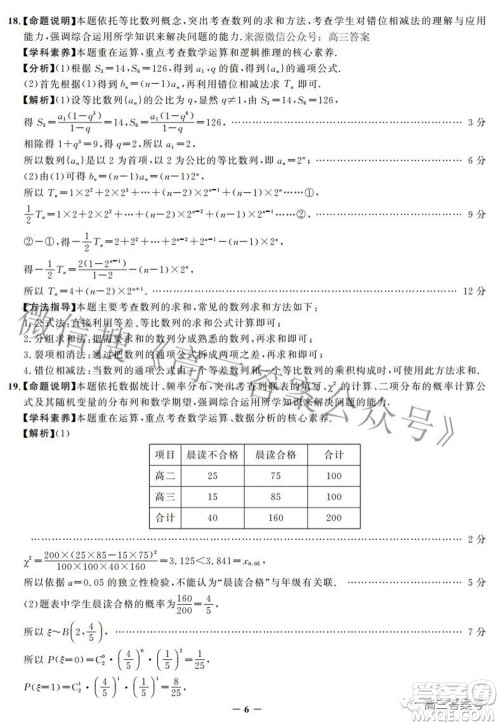 18.【命题说明】本题依托等比数列概念,突出考查数列的求和方法,考查学生对错位相减法的理解与应用
能力,强调综合运用所学知识来解决问题的能力. 来源微信公众号:高三答案
【学科素养】本题重在运算,重点考查数学运算和逻辑推理的核心素养.
【分析】(1)根据 S₃=14,S₆=126,可得出 a₁,q 的值,得到{aₙ}的通项公式.
(2)首先根据(1)得到 bₙ=(n-1)aₙ,再利用错位相减法求 Tₙ 即可.
【解析】(1)设等比数列{aₙ}的公比为 q,显然 q≠1,由 S₃=14,S₆=126,
得 S₃=a₁(1-q³)/(1-q)=14,S₆=a₁(1-q⁶)/(1-q)=126, 3 分
相除得 1+q³=9,所以 q=2,所以 a₁=2,
所以数列{aₙ}是以 2 为首项,以 2 为公比的等比数列,即 aₙ=2ⁿ; 6 分
(2)由(1)可得 bₙ=(n-1)aₙ=(n-1)×2ⁿ,
所以 Tₙ=1×2²+2×2³+⋯+(n-2)×2ⁿ⁻¹+(n-1)×2ⁿ⋯①,
所以 1/2 Tₙ=1×2+2×2²+⋯+(n-2)×2ⁿ⁻²+(n-1)×2ⁿ⁻¹⋯②, 9 分
②-①,得-1/2 Tₙ=2+2²+⋯+2ⁿ⁻¹-(n-1)×2ⁿ,
得-1/2 Tₙ=2(1-2ⁿ⁻¹)/(1-2)-(n-1)×2ⁿ,
所以 Tₙ=4+(n-2)×2ⁿ⁺¹. 12 分
【方法指导】本题主要考查数列的求和,常见的数列求和方法如下:
1.公式法:直接利用等差、等比数列的求和公式计算即可;
2.分组求和法:把需要求和的数列分成熟悉的数列,再求和即可;
3.裂项相消法:通过把数列的通项公式拆成两项之差,再求和即可;
4.错位相减法:当数列的通项公式由一个等差数列和一个等比数列的乘积构成时,可使用此方法求和.
19.【命题说明】本题依托数据统计、频率分布,突出考查列联表的填写、χ² 的计算、二项分布的概率计算公
式及其随机变量的分布列和数学期望,强调综合运用所学知识来解决问题的能力.
【学科素养】本题重在运算,重点考查数学运算、数据分析的核心素养.
【解析】(1)
项目 晨读不合格 晨读合格 合计
高二 25 75 100
高三 15 85 100
合计 40 160 200
2 分
χ²=200×(25×85-15×75)²/(100×100×40×160)=3.125<3.841=x₀.₀₅,
所以依据 α=0.05 的独立性检验,不能认为“晨读合格”与年级有关联. 5 分
(2)题表中学生晨读合格的概率为160/200=4/5,
所以 ξ~B(2,4/5), 7 分
所以 P(ξ=0)=C₂⁰·(4/5)⁰·(1/5)²=1/25,
P(ξ=1)=C₂¹·(4/5)¹·(1/5)¹=8/25,
— 6 —
微信搜《高三答案公众号》
高三答案号